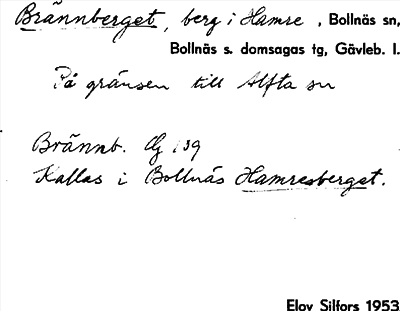 Brännberget, berg i Hamre, Bollnäs sn,
Bollnäs s. domsagas tg, Gävleb. l.
På gränsen till Alfta sn
Brännb. 139
Kallas i Bollnäs Hamresberget.
Elov Silfors 1953